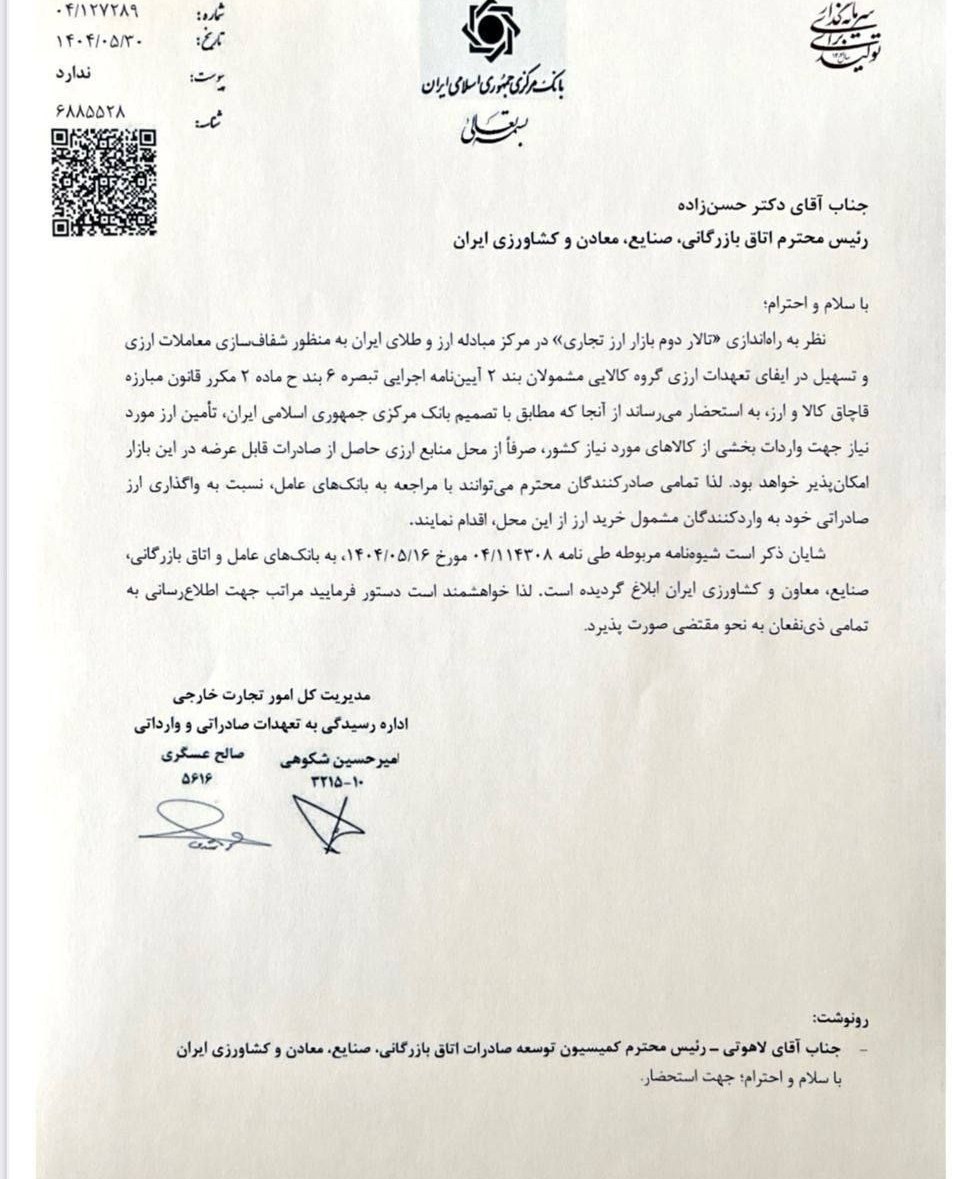 شماره: ۰۴/۱۲۷۲۸۹
تاریخ: ۱۴۰۴/۰۵/۳۰
پیوست: ندارد
شناسه: ۶۸۸۵۵۲۸
سرمایه‌گذاری
برای
تولید
بانک مرکزی جمهوری اسلامی ایران
بسمه تعالی
جناب آقای دکتر حسن‌زاده
رئیس محترم اتاق بازرگانی، صنایع، معادن و کشاورزی ایران
با سلام و احترام؛
نظر به راه‌اندازی «تالار دوم بازار ارز تجاری» در مرکز مبادله ارز و طلای ایران به منظور شفاف‌سازی معاملات ارزی
و تسهیل در ایفای تعهدات ارزی گروه کالایی مشمولان بند ۲ آیین‌نامه اجرایی تبصره ۶ بند ح ماده ۲ مکرر قانون مبارزه
قاچاق کالا و ارز، به استحضار می‌رساند از آنجا که مطابق با تصمیم بانک مرکزی جمهوری اسلامی ایران، تأمین ارز مورد
نیاز جهت واردات بخشی از کالاهای مورد نیاز کشور، صرفاً از محل منابع ارزی حاصل از صادرات قابل عرضه در این بازار
امکان‌پذیر خواهد بود. لذا تمامی صادرکنندگان محترم می‌توانند با مراجعه به بانک‌های عامل، نسبت به واگذاری ارز
صادراتی خود به واردکنندگان مشمول خرید ارز از این محل، اقدام نمایند.
شایان ذکر است شیوه‌نامه مربوطه طی نامه ۰۴/۱۱۴۳۰۸ مورخ ۱۴۰۴/۰۵/۱۶، به بانک‌های عامل و اتاق بازرگانی،
صنایع، معاون و کشاورزی ایران ابلاغ گردیده است. لذا خواهشمند است دستور فرمایید مراتب جهت اطلاع‌رسانی به
تمامی ذی‌نفعان به نحو مقتضی صورت پذیرد.
مدیریت کل امور تجارت خارجی
اداره رسیدگی به تعهدات صادراتی و وارداتی
امیرحسین شکوهی
۳۲۱۵-۱۰
صالح عسگری
۵۶۱۶
رونوشت:
- جناب آقای لاهوتی – رئیس محترم کمیسیون توسعه صادرات اتاق بازرگانی، صنایع، معادن و کشاورزی ایران
با سلام و احترام؛ جهت استحضار.